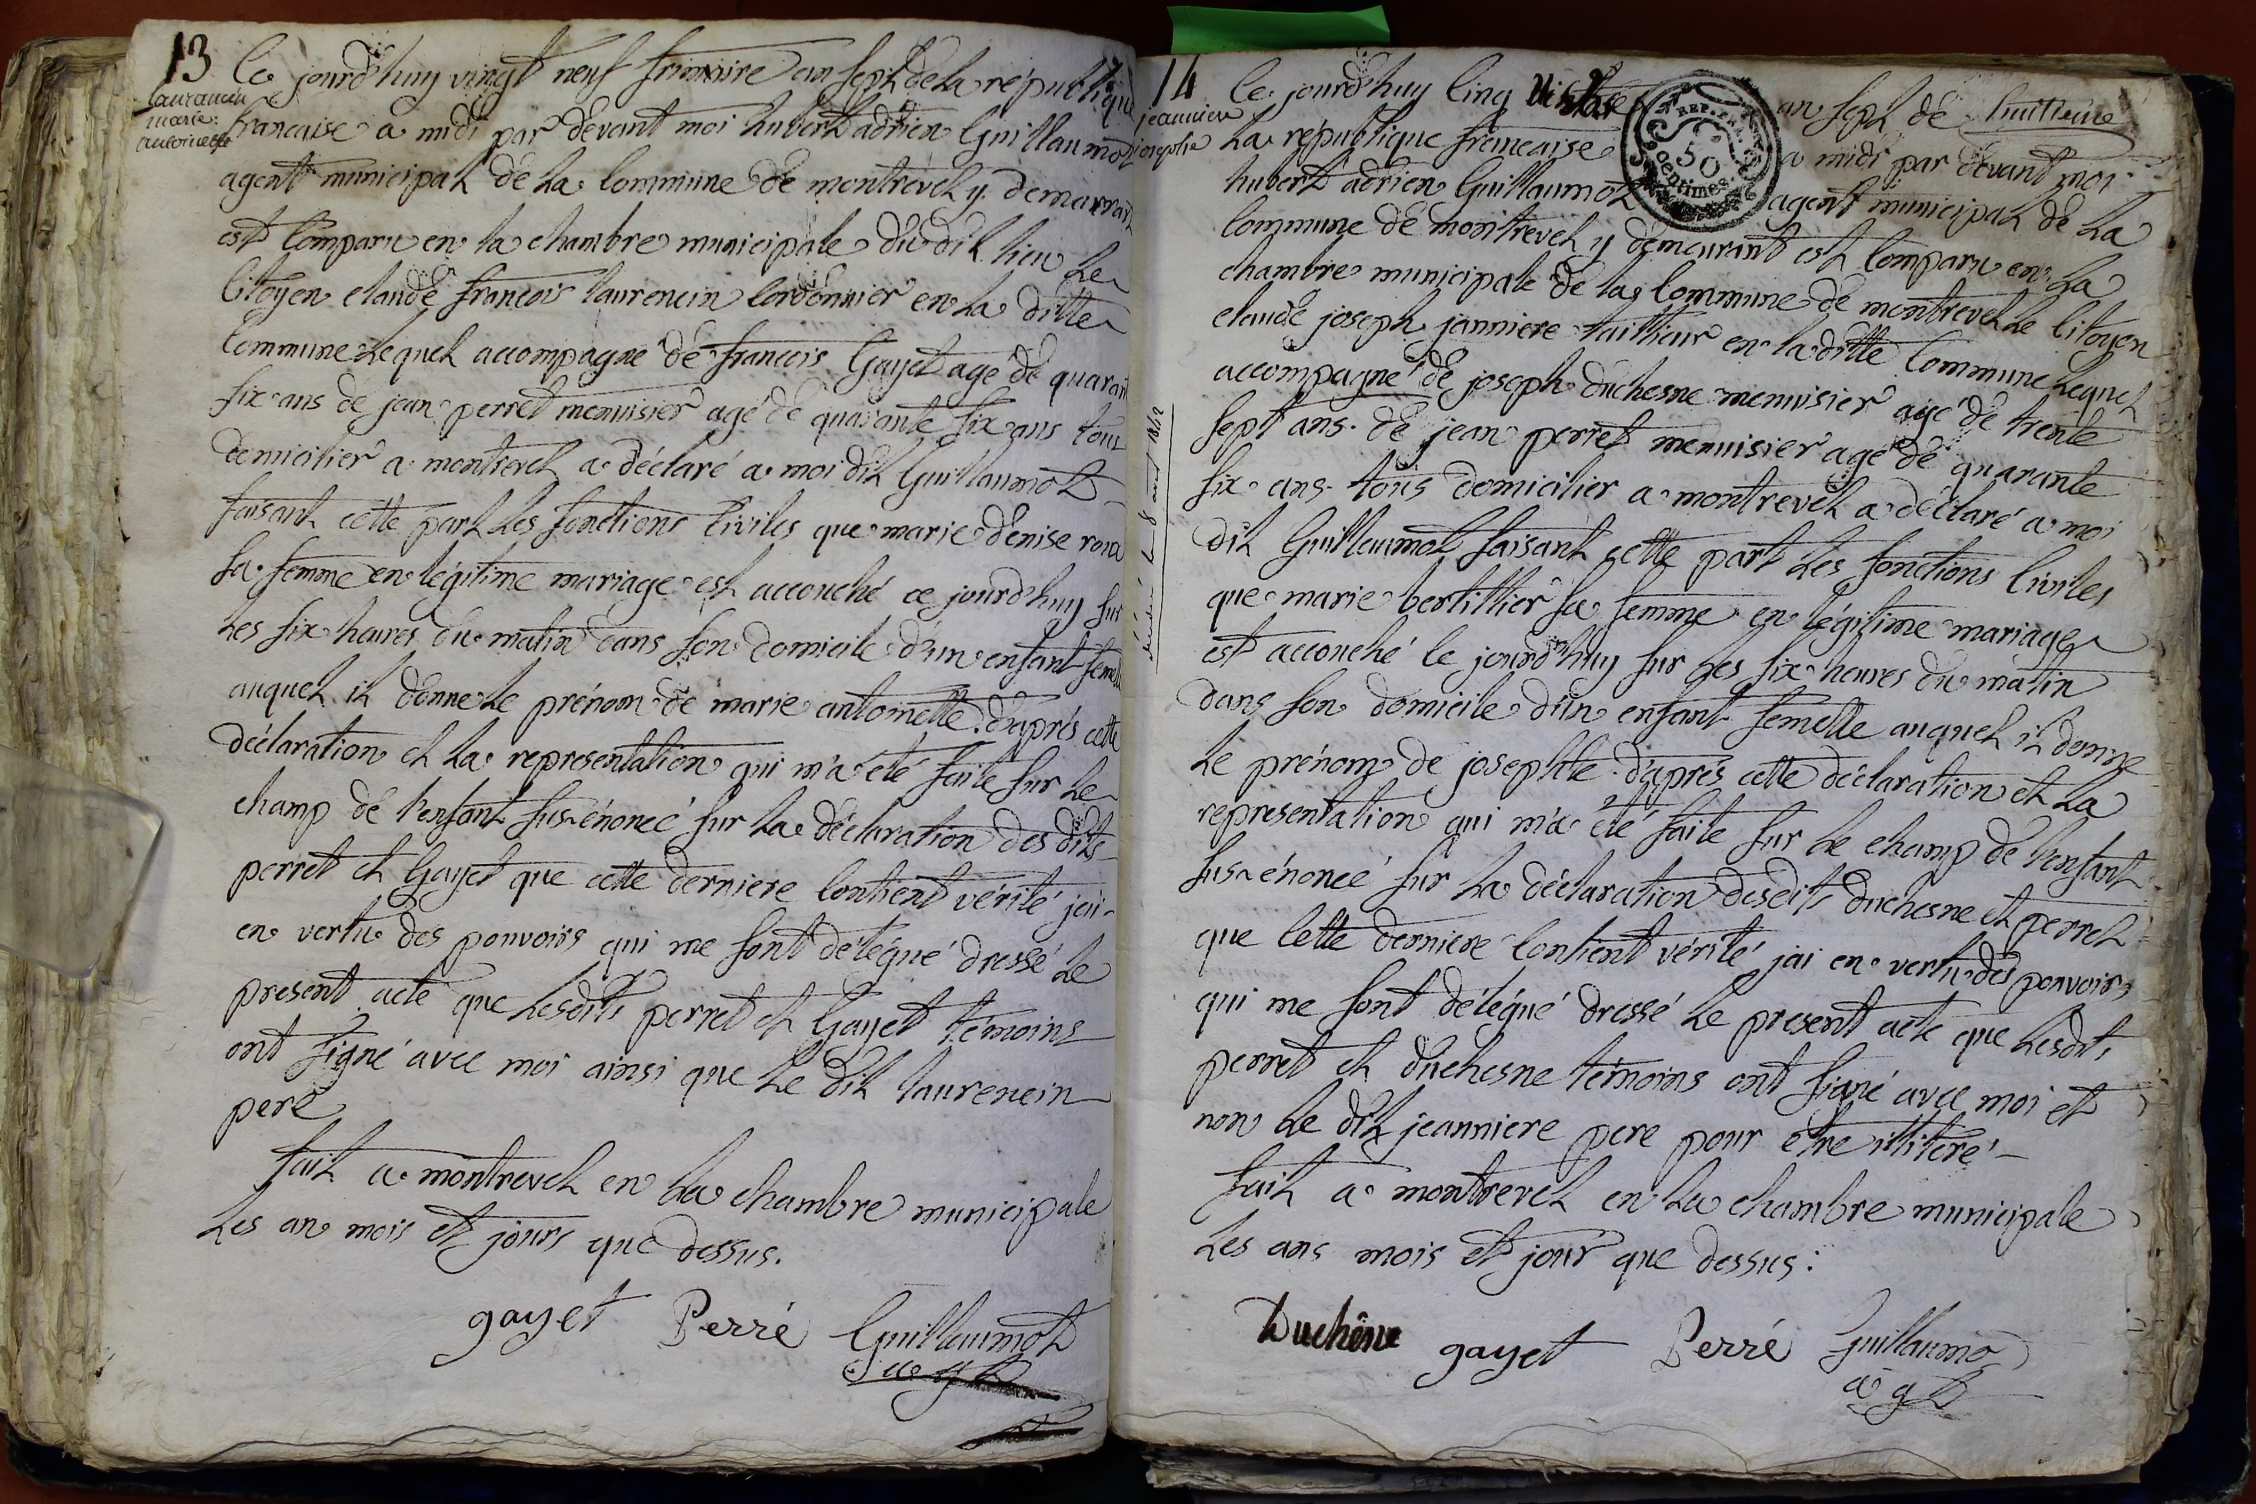 13
laurancin
marie
antoinette
Ce jourd'huy vingt neuf frimaire an sept de la république
francaise a midi par dévant moi hubert adrien Guillaumot
agent municipal de la Commune de montrevel y demeurant
est Comparu en la chambre municipale du dit lieu le
Citoyen claude francois laurencin Cordonnier en la ditte
Commune lequel accompagné de francois Gayet agé de quarante
six ans de jean perret menuisier agé de quarante six ans tous
domicilier a montrevel a déclaré a moi dit Guillaumot
faisant cette part les fonctions Civiles que marie denise
sa femme en légitime mariage est accouché ce jourd'huy sur
les six heures du matin dans son domicile d'un enfant femelle
auquel il donne le prénom de marie antoinette. d'aprés cette
déclaration et la representation qui m'a été faite sur le
champ de l'enfant sus-énoncé sur la déclaration des dits
perret et Gayet que cette derniere Contient vérité j'ai
en vertu des pouvoirs qui me sont délégué dressé le
present acte que lesdits perret et Gayet témoins
ont signé avec moi ainsi que le dit laurencin
pere
fait a montrevel en la chambre municipale
les an mois et jours que dessus.
gayet Perré Guillaumot
agt
14
jeanniere
josephte
Ce jourd'huy Cinq an sept de
REP. FRA.
50
centimes.
la république francaise a midi par dévant moi
hubert adrien Guillaumot agent municipal de la
Commune de montrevel y demeurant est Comparu en la
chambre municipale de la Commune de montrevel le Citoyen
claude joseph janniere tailleur en la ditte Commune lequel
accompagné de joseph duchesne menuisier agé de trente
sept ans. de jean perret menuisier agé de quarante
six ans. tous domicilier a montrevel a déclaré a moi
dit Guillaumot faisant cette part les fonctions Civiles
que marie bertillier sa femme en légitime mariage
est accouché le jourd'huy sur les six heures du matin
dans son domicile d'un enfant femelle auquel il donne
le prénom de josephte. d'aprés cette déclaration et la
representation qui m'a été faite sur le champ de l'enfant
sus-énoncé sur la déclaration desdits duchesne et perret
que Cette derniere Contient vérité j'ai en vertu des pouvoirs
qui me sont délégué dressé le present acte que lesdits
perret et duchesne témoins ont signé avec moi et
non le dit jeanniere pere pour etre illiteré
fait a montrevel en la chambre municipale
les ans mois et jour que dessus:
Duchêne gayet Perré Guillaumot
agt